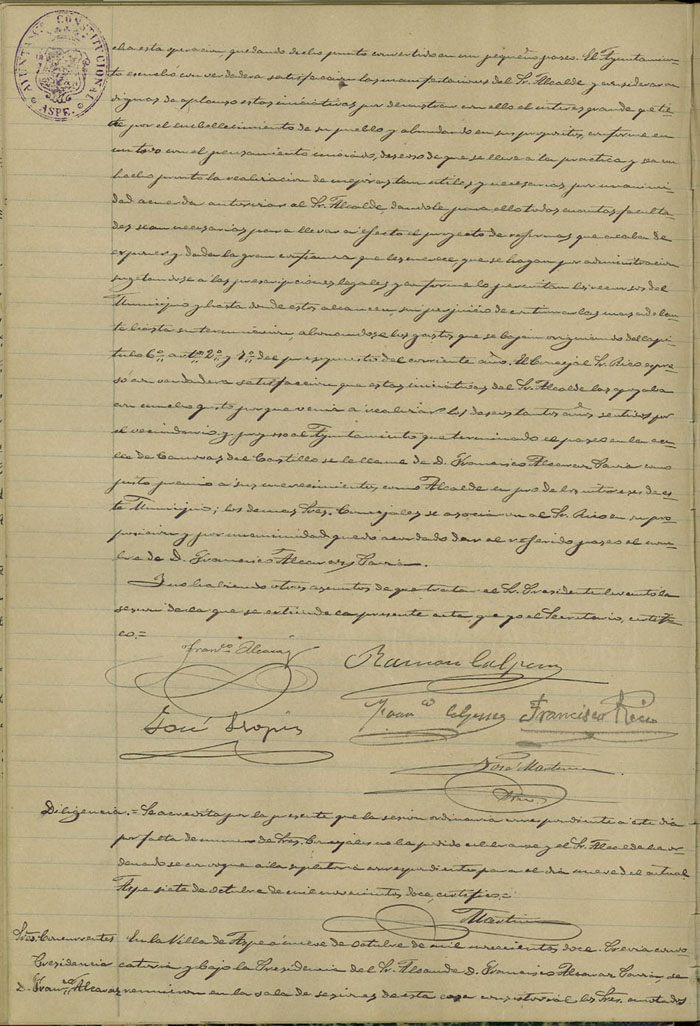 AYUNTAMº CONSTITUCIONAL
ASPE
cha esta operacion, quedando dicho punto convertido en un pequeño paseo. El Ayuntamien-
to escuchó con verdadera satisfaccion las manifestaciones del Sr. Alcalde y consideran
dignas de aplauso estas iniciativas por demostrar con ello el interes grande que tie-
ne por el embellecimiento de su pueblo y abundando en sus propositos, conforme en
un todo con el pensamiento enunciado, deseoso de que se lleve a la practica y sea un
hecho pronto la realizacion de mejoras tan utiles y necesarias por unanimi-
dad acuerda autorizar al Sr. Alcalde dandole para ello todas cuantas faculta-
des sean necesarias para llevar a efecto el proyecto de reformas que acaba de
exponer y dada la gran confianza que les merece, que se hagan por administracion
sujetandose a las prescripciones legales y conforme lo permitan los recursos del
Municipio y hasta donde estos alcancen, sin perjuicio de continuar las mas adelan-
te hasta su terminacion, abonandose los gastos que se hayan originado del capi-
tulo 6º artº 2º y 7º del presupuesto del corriente año. El Concejal Sr. Rico expre-
só con verdadera satisfaccion que estas iniciativas del Sr. Alcalde las apoyaba
con mucho gusto porque venia a realizar los deseos tantos años sentidos por
el vecindario y propuso al Ayuntamiento que terminado el paseo en la ca-
lle de Canovas del Castillo se le llame de D. Francisco Alcaraz Carrion como
justo premio a sus merecimientos como Alcalde en pro de los intereses de es-
te Municipio; los demas Sres. Concejales se asociaron al Sr. Rico en su pro-
posicion y por unanimidad quedó acordado dar al referido paseo el nom-
bre de D. Francisco Alcaraz
Y no habiendo otros asuntos de que tratar el Sr. Presidente levantó la
sesion de la que se extiende la presente acta que yo el Secretario, certifi-
co.=
Franco Alcaraz
Ramon Calpena
José Llopis
Francisco Rico
José Martinez
Diligencia.= Se acredita por la presente que la sesion ordinaria correspondiente a este dia
por falta de numero de Sres. Concejales no ha podido celebrarse y el Sr. Alcalde ha or-
denado se convoque a la supletoria correspondiente para el dia nueve del actual
Aspe siete de Octubre de mil novecientos doce, certifico.=
Martinez
Sres. Concurrentes
En la Villa de Aspe a nueve de Octubre de mil novecientos doce. Previa convo-
Presidencia
catoria y bajo la Presidencia del Sr. Alcalde D. Francisco Alcaraz, se
D. Franco Alcaraz
reunieron en la sala de sesiones de esta casa consistorial los Sres. anotados